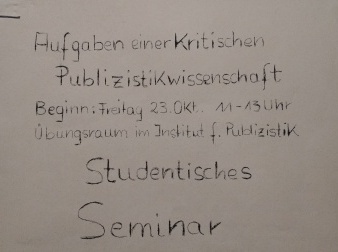 Aufgaben einer Kritischen
Publizistikwissenschaft
Beginn: Freitag 23. Okt. 11-13 Uhr
Übungsraum im Institut f. Publizistik
Studentisches
Seminar